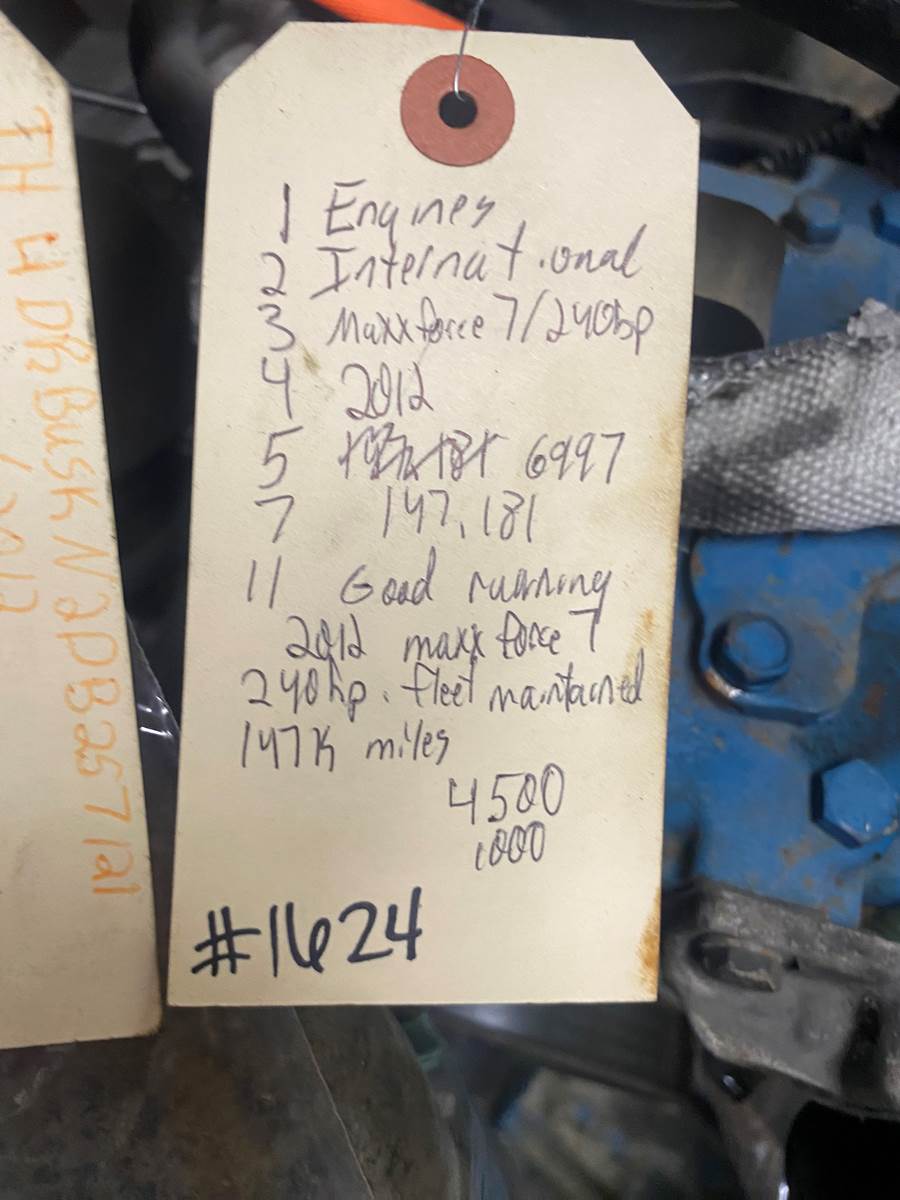 1 Engines
2 International
3 Maxxforce 7/240hp
4 2012
5 6997
7 147,181
11 Good running
2012 maxx force 7
240hp. fleet maintained
147K miles
4500
1000
#1624